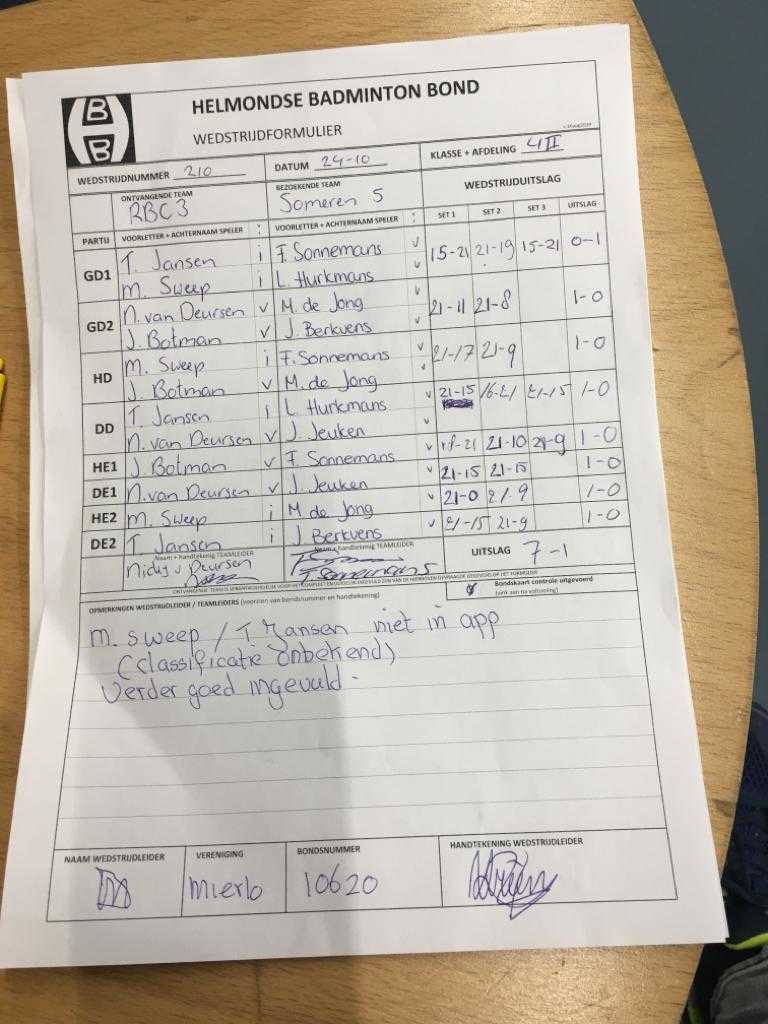 HELMONDSE BADMINTON BOND
WEDSTRIJDFORMULIER
WEDSTRIJDNUMMER 210 DATUM 24-10 KLASSE + AFDELING 4II
ONTVANGENDE TEAM BEZOEKENDE TEAM WEDSTRIJDUITSLAG
RBC3 Someren 5
PARTIJ VOORLETTER + ACHTERNAAM SPELER VOORLETTER + ACHTERNAAM SPELER SET 1 SET 2 SET 3 UITSLAG
GD1 T. Jansen i F. Sonnemans v 15-21 21-19 15-21 0-1
M. Sweep i L. Hurkmans v
GD2 N. van Deursen v M. de Jong v 21-11 21-8 1-0
J. Botman v J. Berkvens
HD M. Sweep i F. Sonnemans v 21-17 21-9 1-0
J. Botman v M. de Jong v
DD T. Jansen i L. Hurkmans v 21-15 16-21 21-15 1-0
N. van Deursen v J. Jeuken v
HE1 J. Botman v F. Sonnemans v 21 21-10 21-9 1-0
DE1 N. van Deursen v J. Jeuken v 21-15 21-15 1-0
HE2 M. Sweep i M. de Jong v 21-0 21-9 1-0
DE2 T. Jansen i J. Berkvens v 21-15 21-9 1-0
Naam + handtekening TEAMLEIDER Naam + handtekening TEAMLEIDER UITSLAG 7-1
Nicky v Deursen F. Sonnemans
Bondskaart controle uitgevoerd
OPMERKINGEN WEDSTRIJDLEIDER / TEAMLEIDERS (voorzien van bondsnummer en handtekening)
M. Sweep / T. Jansen niet in app
(classificatie onbekend)
Verder goed ingevuld -
NAAM WEDSTRIJDLEIDER VERENIGING BONDSNUMMER HANDTEKENING WEDSTRIJDLEIDER
Mierlo 10620